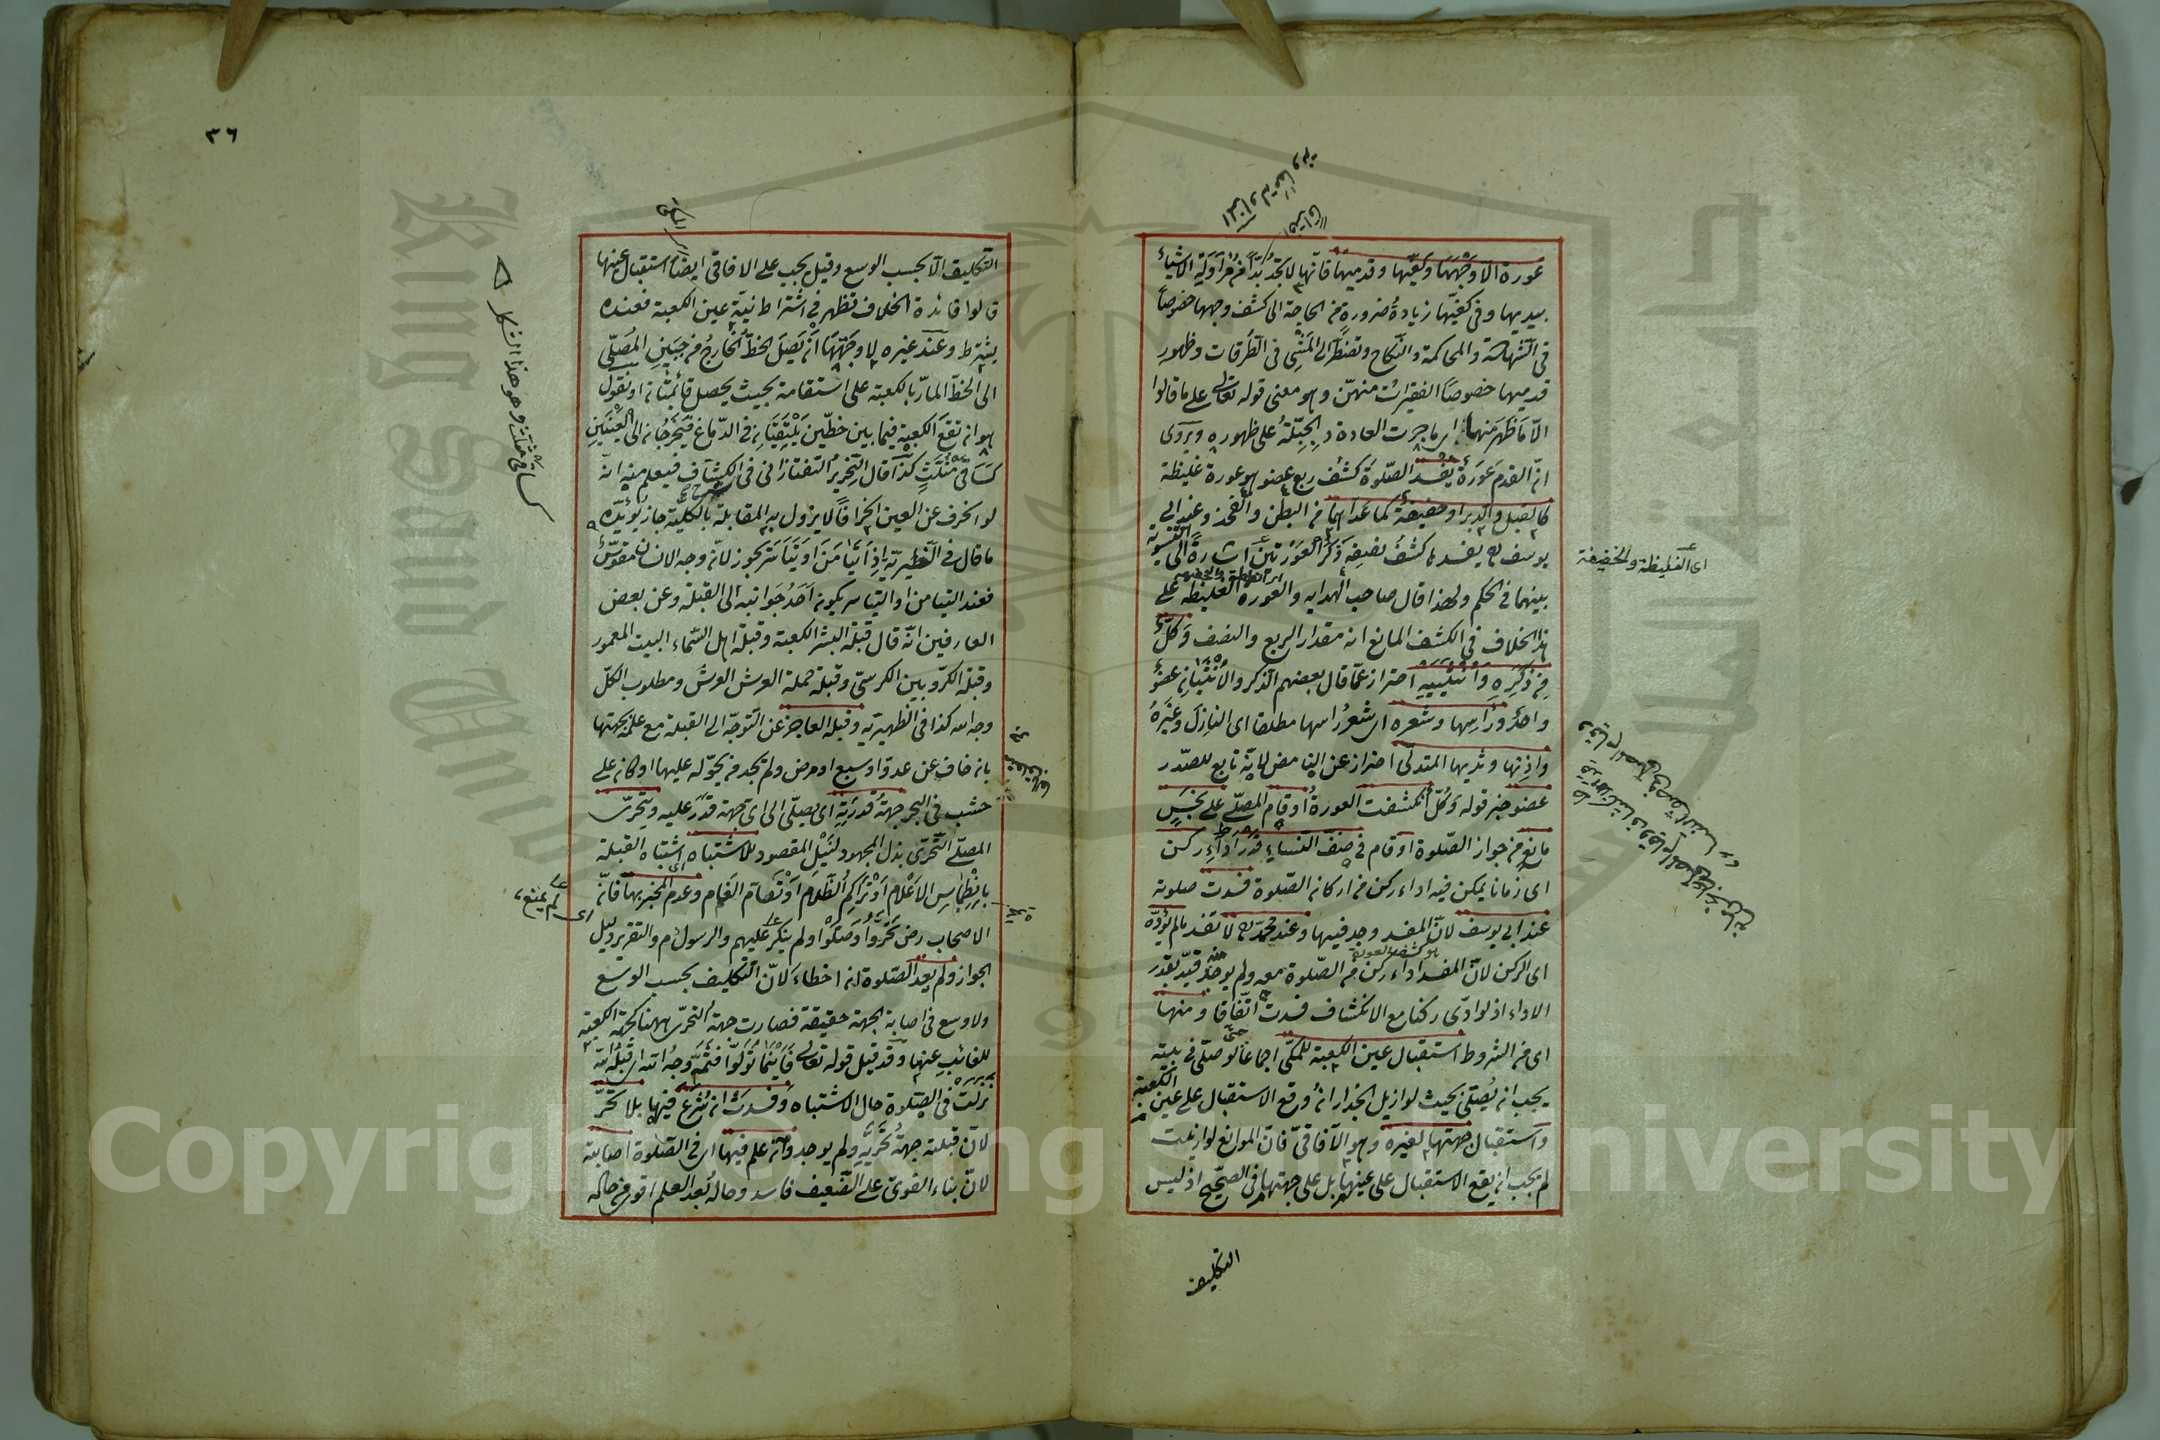 عورة الا وجهها وكفيها وقدميها فانها لا تجد بدا من مزاولة الاشياء
بيديها وفى كفيها زيادة ضرورة من الحاجة الى كشف وجهها خصوصا
فى الشهادة والمحاكمة والنكاح وتضطر الى المشى فى الطرقات وظهور
قدميها خصوصا الفقيرات منهن وهو معنى قوله تعالى على ما قالوا
الا ما ظهر منها اى ما جرت العادة والجبلة على ظهوره ويروى
ان القدم عورة يفسد الصلوة كشف ربع عضو هو عورة غليظة
كالقبل والدبر او خفيفة كما عداهما من البطن والفخذ وعند ابى
يوسف يفسدها كشف نصيفه ذكر العورتين اشارة الى التسوية
بينهما فى الحكم ولهذا قال صاحب الهدايه والعورة الغليظة على
هذا الخلاف فى الكشف المانع انه مقدار الربع والنصف وكل
من ذكره وانثييه احتراز عما قال بعضهم الذكر والانثيان عضو
واحد وراسها وشعره اى شعر راسها مطلقا اى النازل وغيره
واذنها وثديها المتدلى احتراز عن الناهض لانه تابع للصدر
عضو خبر قوله وكل انكشفت العورة او قام المصلى على نجس
مانع من جواز الصلوة او قام فى صف النساء قدر اداء ركن
اى زمانا يمكن فيه اداء ركن من اركانه الصلوة فسدت صلوته
عند ابى يوسف لان المفسد وجد فيها وعند محمد لا تفسد ما لم يؤده
اى الركن لان المفسد اداء ركن من الصلوة معه ولم يوجد قيد بقدر
الاداء اذ لو ادى ركنا مع الانكشاف فسدت اتفاقا ومنها
اى من الشروط استقبال عين الكعبة للمكى اجماعا حتى لو صلى فى بيته
يجب ان يصلى بحيث لو ازيل الجدار ان وقع الاستقبال على عين الكعبة
واستقبال جهتها لغيره وهو الآفاقى فان الموانع لو ازيلت
لم يجب ان يقع الاستقبال على عينها بل على جهتها فى الصحيح اذ ليس
التكليف
اى الغليظة والخفيفة
٣٦
التكليف الا بحسب الوسع وقيل يجب على الافاقى ايضا استقبال عينها
قالوا فائدة الخلاف تظهر فى اشتراط نية عين الكعبة فعنده
يشترط وعند غيره لا وجهتها ان يصل الخط الخارج من جبين المصلى
الى الخط المار بالكعبة على استقامة بحيث يحصل قائمتان او نقول
هو ان تقع الكعبة فيما بين خطين يلتقيان فى الدماغ فيخرجان الى العينين
كساقى مثلث كذا قال النحرير التفتازانى فى الكشاف فيعلم منه انه
لو انحرف عن العين انحرافا لا يزول به المقابلة بالكلية جاز يؤيده
ما قال فى الظهيرية اذا تيامن او تياسر يجوز لان وجه الانسان مقوس
فعند التيامن او التياسر يكون احد جوانبه الى القبلة وعن بعض
العارفين انه قال قبلة البشر الكعبة وقبلة اهل السماء البيت المعمور
وقبلة الكروبين الكرسى وقبلة حملة العرش العرش ومطلوب الكل
وجه الله كذا فى الظهيرية وقبلة العاجز عن التوجه الى القبلة مع علمه بجهتها
بان خاف عن عدو او سبع او مرض ولم يجد من يحوله عليها او كان على
خشب فى البحر جهة قدرته اى يصلى الى اى جهة قدر عليه ويتحرى
المصلى التحرى بذل المجهود لنيل المقصود للاشتباه اى اشتباه القبلة
بانطماس الاعلام او تراكم الظلام او تضام الغمام وعدم المخبر بها فان
الاصحاب رض تحروا وصلوا ولم ينكر عليهم والرسول م والتقرير دليل
الجواز ولم يعد الصلوة ان اخطاء لان التكليف بحسب الوسع
ولا وسع فى اصابة الجهة حقيقة فصارت جهة التحرى ههنا كجهة الكعبة
للغائب عنها وقد قيل قوله تعالى فاينما تولوا فثم وجه الله اى قبلة الله
نزلت فى الصلوة حال الاشتباه وفسدت ان شرع فيها بلا تحر
لان قبلته جهة تحريه ولم يوجد وان علم فيها اى فى الصلوة اصابته
لان بناء القوى على الضعيف فاسد وحاله بعد العلم اقوى من حاله
كساقى مثلث وهو هذا الشكل
اى لم يمنع
Copyright © King Saud University
King Saud University